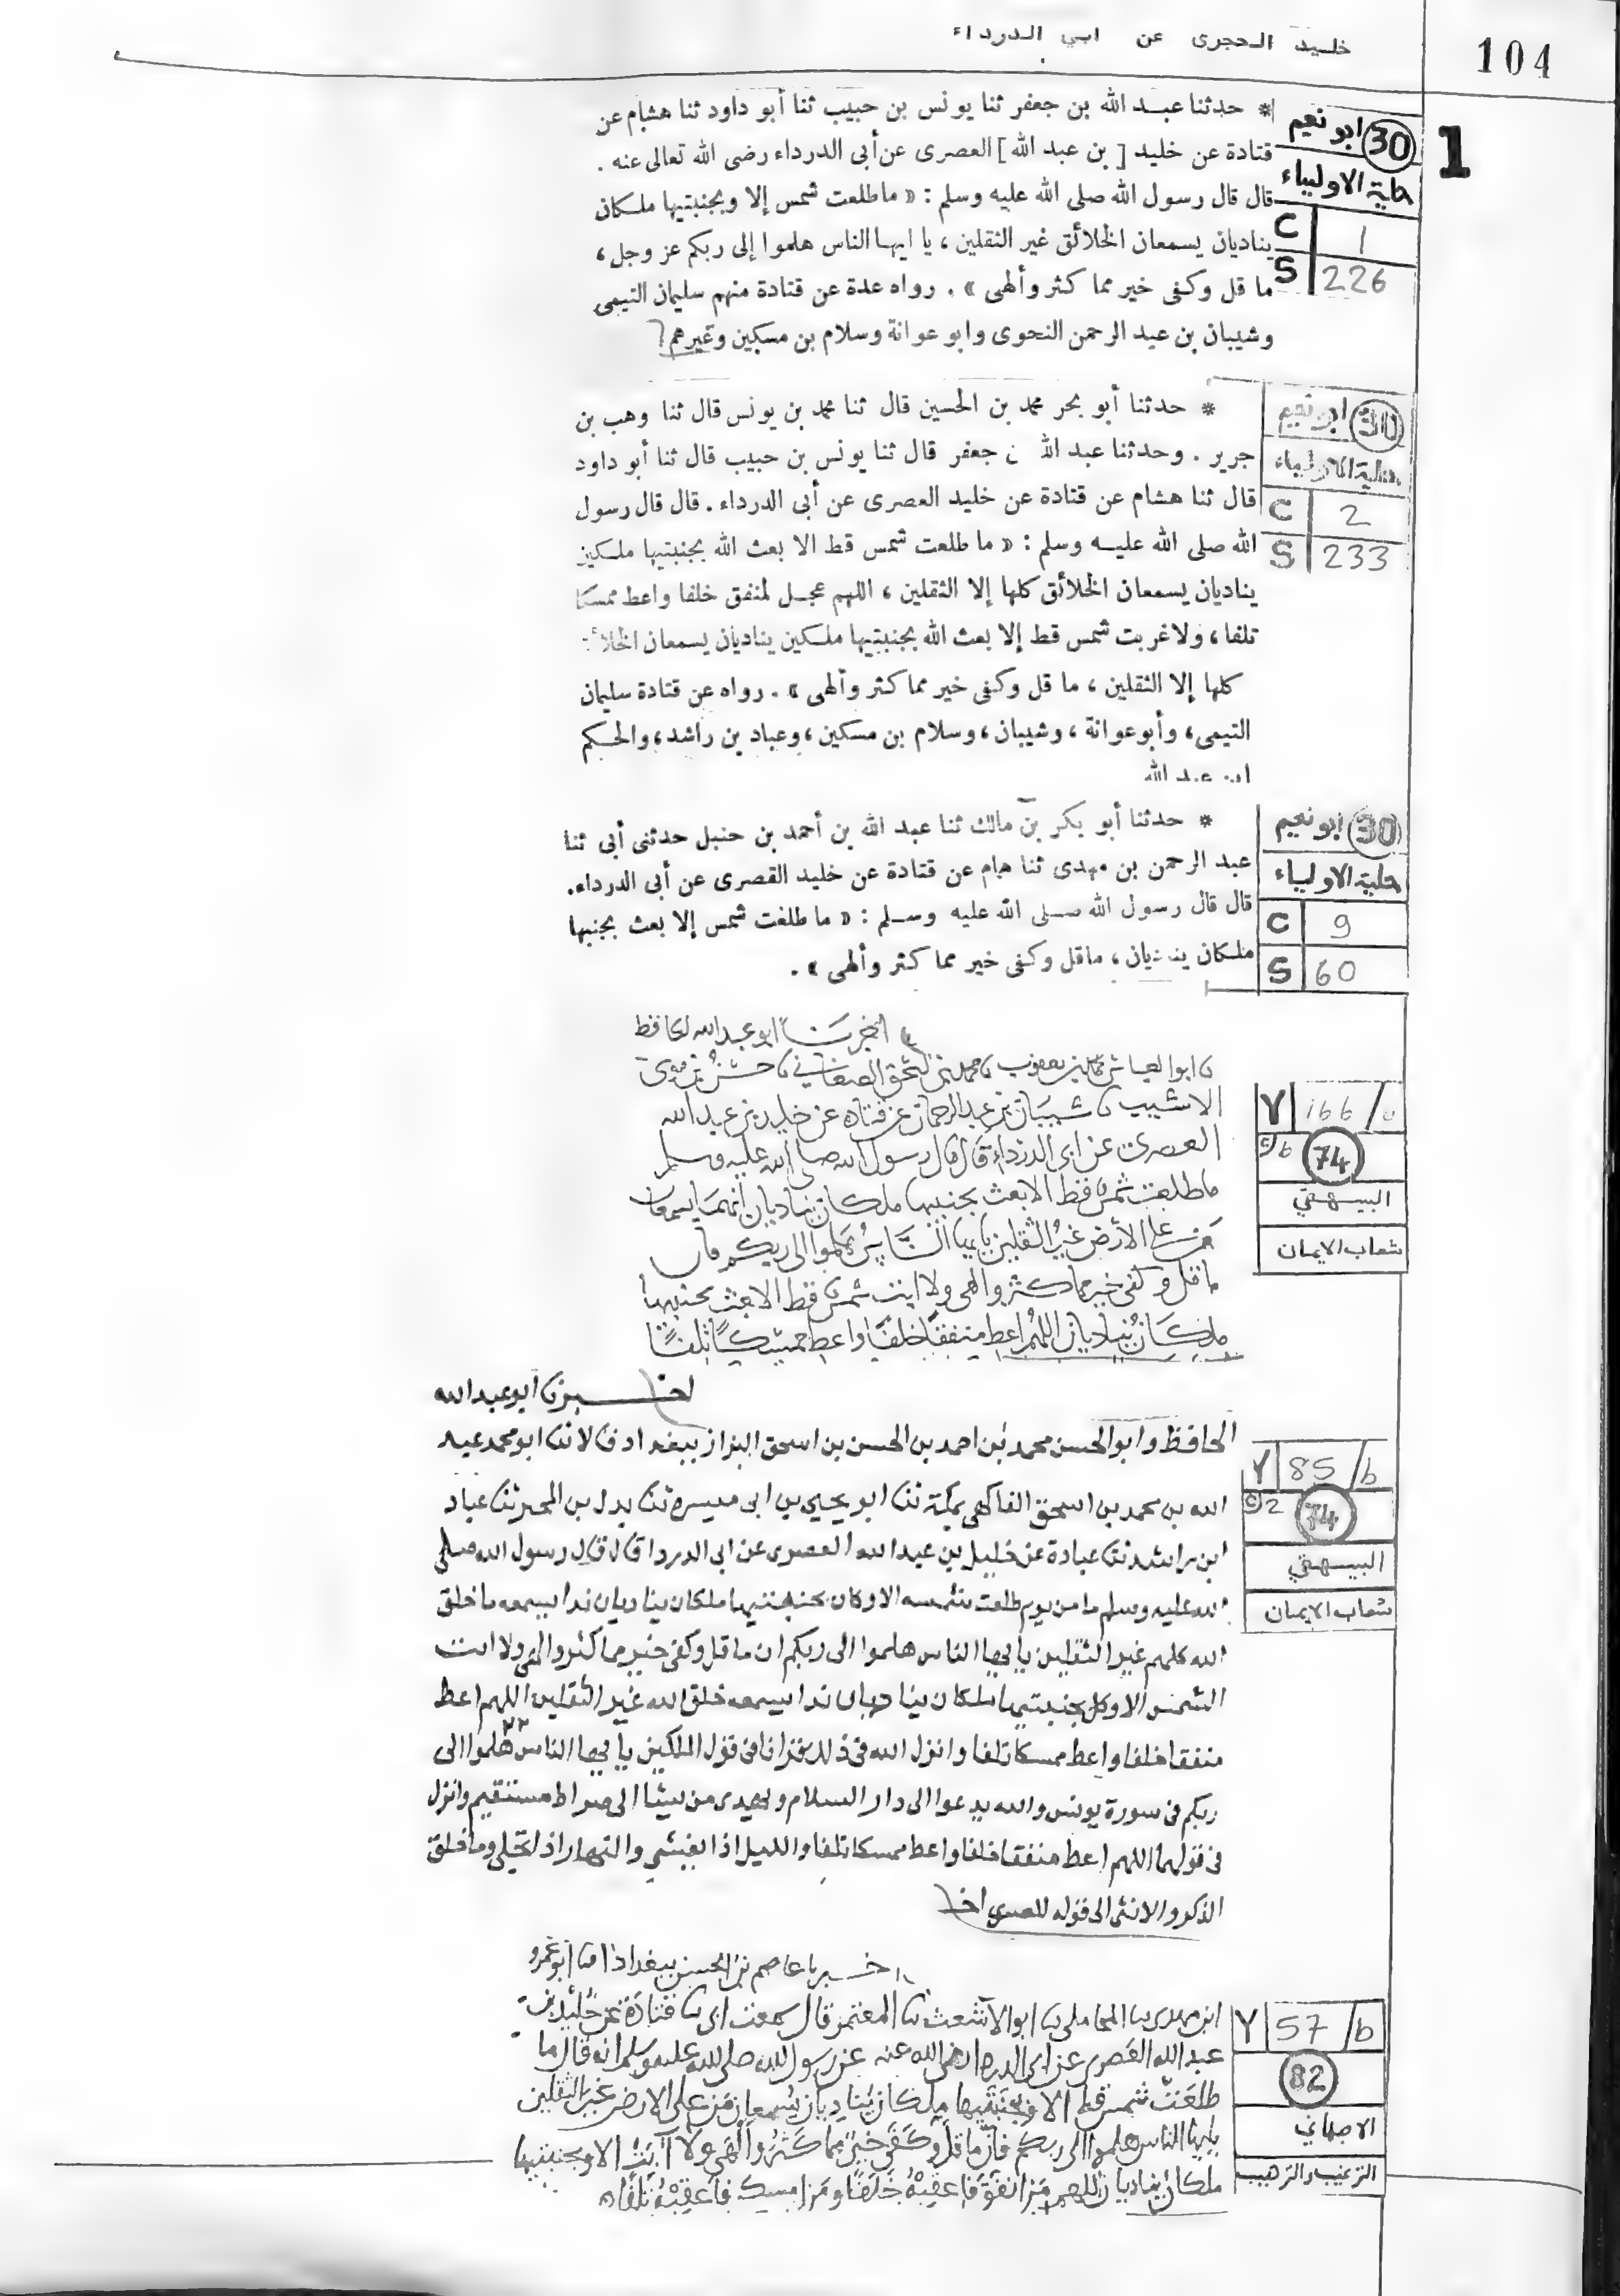 104
خليد الحجرى عن ابي الدرداء
1
30 ابو نعيم
حلية الاولياء
C 1
S 226
* حدثنا عبد الله بن جعفر ثنا يونس بن حبيب ثنا أبو داود ثنا هشام عن
قتادة عن خليد [ بن عبد الله ] العصرى عن أبى الدرداء رضى الله تعالى عنه .
قال قال رسول الله صلى الله عليه وسلم : « ما طلعت شمس إلا وبجنبتيها ملكان
يناديان يسمعان الخلائق غير الثقلين ، يا ايها الناس هلموا إلى ربكم عز وجل ،
ما قل وكفى خير مما كثر وألهى » . رواه عدة عن قتادة منهم سليمان التيمى
وشيبان بن عبد الرحمن النحوى وابو عوانة وسلام بن مسكين وغيرهم
30 ابو نعيم
حلية الاولياء
C 2
S 233
* حدثنا أبو بحر محمد بن الحسين قال ثنا محمد بن يونس قال ثنا وهب بن
جرير . وحدثنا عبد الله بن جعفر قال ثنا يونس بن حبيب قال ثنا أبو داود
قال ثنا هشام عن قتادة عن خليد العصرى عن أبى الدرداء . قال قال رسول
الله صلى الله عليه وسلم : « ما طلعت شمس قط الا بعث الله بجنبتيها ملكين
يناديان يسمعان الخلائق كلها إلا الثقلين ، اللهم عجل لمنفق خلفا واعط ممسكا
تلفا ، ولا غربت شمس قط إلا بعث الله بجنبتيها ملكين يناديان يسمعان الخلائق
كلها إلا الثقلين ، ما قل وكفى خير مما كثر وألهى » . رواه عن قتادة سليمان
التيمى ، وأبو عوانة ، وشيبان ، وسلام بن مسكين ، وعباد بن راشد ، والحكم
ابن عبد الله
30 ابو نعيم
حلية الاولياء
C 9
S 60
* حدثنا أبو بكر بن مالك ثنا عبد الله بن أحمد بن حنبل حدثنى أبى ثنا
عبد الرحمن بن مهدى ثنا همام عن قتادة عن خليد القصرى عن أبى الدرداء .
قال قال رسول الله صلى الله عليه وسلم : « ما طلعت شمس إلا بعث بجنبها
ملكان يناديان ، ما قل وكفى خير مما كثر وألهى » .
Y 166/a
c/b 74
البيهقي
شعاب الايمان
اخبرنا ابو عبد الله الحافظ
نا ابو العباس محمد بن يعقوب نا محمد بن اسحق الصغاني نا حسن بن موسى
الاشيب نا شيبان بن عبد الرحمان عن قتاده عن خليد بن عبد الله
العصرى عن ابى الدرداء قال قال رسول الله صلى الله عليه وسلم
ما طلعت شمس قط الا بعث بجنبيها ملكان يناديان انهما يسمعان
من على الارض غير الثقلين يا ايها الناس هلموا الى ربكم فان
ما قل وكفى خير مما كثر والهى ولا ابت شمس قط الا بعث بجنبيها
ملكان يناديان اللهم اعط منفقا خلفا واعط ممسكا تلفا
Y 85/b
c/2 74
البيهقي
شعاب الايمان
اخبرنا ابو عبد الله
الحافظ وابو الحسن محمد بن احمد بن الحسن بن اسحق البزاز ببغداد قالا ثنا ابو محمد عبد
الله بن محمد بن اسحق الفاكهى بمكة ثنا ابو يحيى بن ابى ميسره ثنا بدل بن المحبر ثنا عباد
ابن راشد ثنا عبادة عن خليل بن عبد الله العصرى عن ابى الدردا قال قال رسول الله صلى
الله عليه وسلم ما من يوم طلعت شمسه الا وكان بجنبتيها ملكان يناديان ندا يسمعه ما خلق
الله كلهم غير الثقلين يا ايها الناس هلموا الى ربكم ان ما قل وكفى خير مما كثر والهى ولا ابت
الشمس الا وكل بجنبتيها ملكان يناديان ندا يسمعه خلق الله غير الثقلين اللهم اعط
منفقا خلفا واعط ممسكا تلفا وانزل الله فى ذلك قرانا فى قول الملكين يا ايها الناس هلموا الى
ربكم فى سورة يونس والله يدعوا الى دار السلام ويهدى من يشا الى صراط مستقيم وانزل
فى قولهما اللهم اعط منفقا خلفا واعط ممسكا تلفا والليل اذا يغشى والنهار اذا تجلى وما خلق
الذكر والانثى الى قوله للعسرى
Y 57/b
82
الاصبهاني
الترغيب والترهيب
اخبرنا عاصم بن الحسن ببغداد انا ابو عمرو
ابن مهدى نا المحاملى نا ابو الاشعث نا المعتمر قال سمعت ابى نا قتادة عن خليد بن
عبد الله العصرى عن ابى الدرداء رضى الله عنه عن رسول الله صلى الله عليه وسلم انه قال ما
طلعت شمس قط الا وبجنبتيها ملكان يناديان يسمعان من على الارض غير الثقلين
يا ايها الناس هلموا الى ربكم فان ما قل وكفى خير مما كثر والهى ولا آبت الا وبجنبتيها
ملكان يناديان اللهم من انفق فاعقبه خلفا ومن امسك فاعقبه تلفا